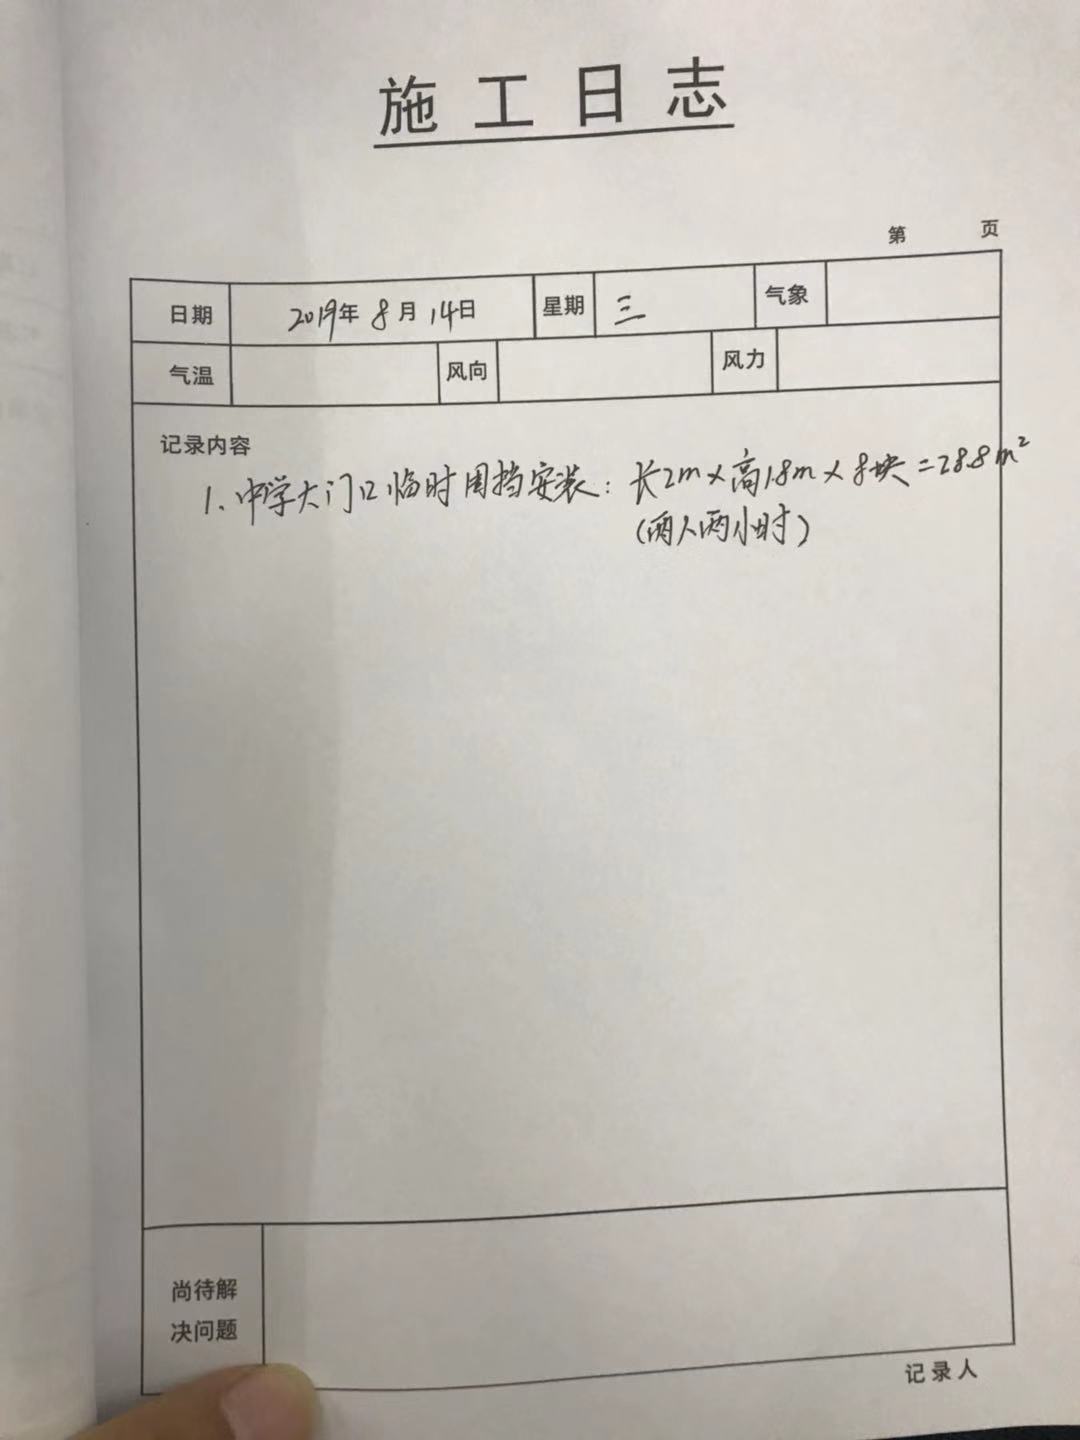 施工日志
第 页
日期 2019年 8月 14日 星期 三 气象
气温 风向 风力
记录内容
1. 中学大门口临时围挡安装: 长2m×高1.8m×8块=28.8m²
(两人两小时)
尚待解
决问题
记录人